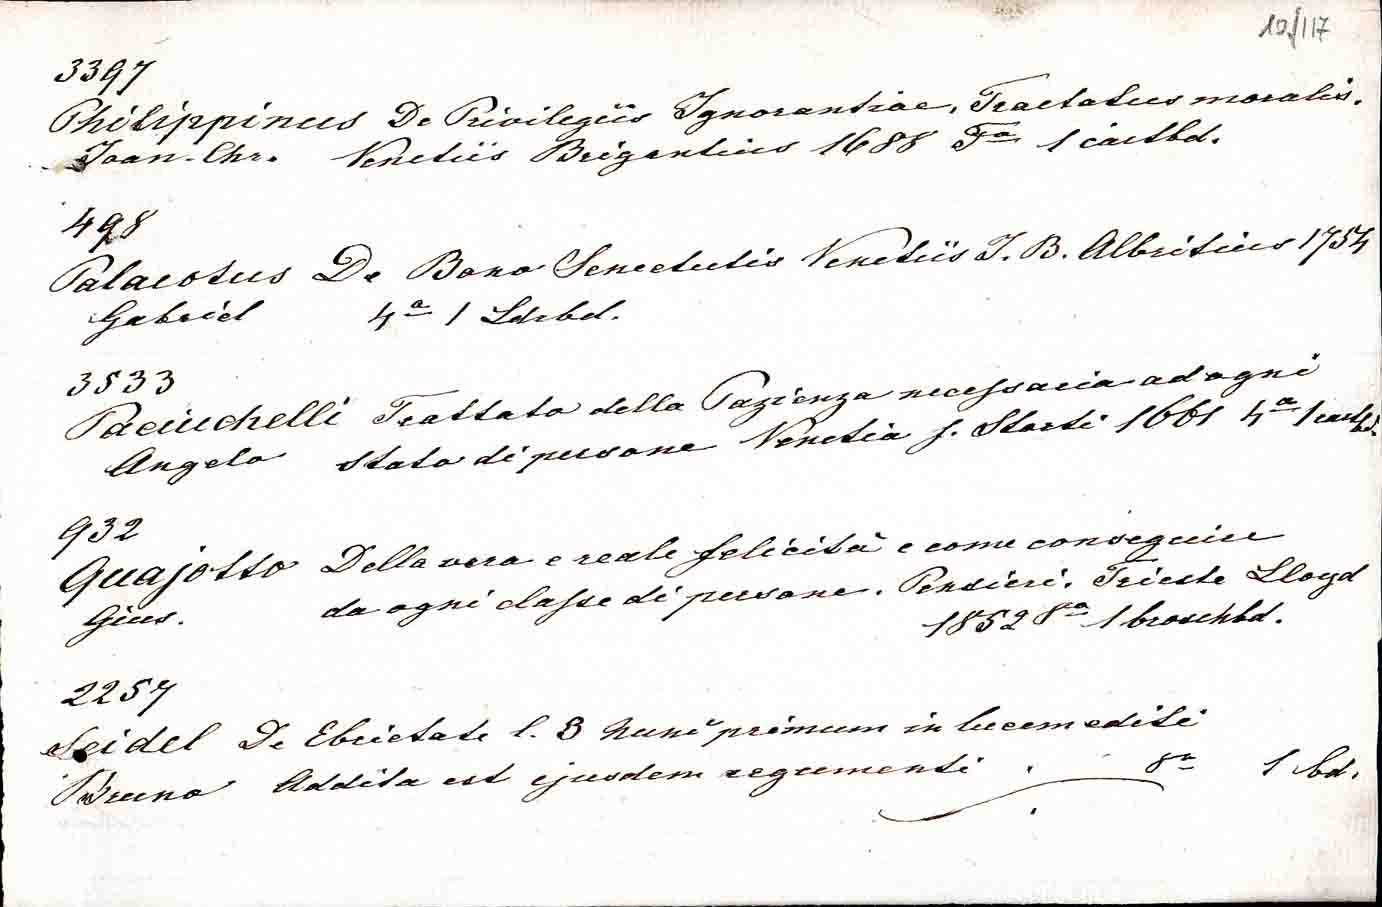 10/117
3397
Philippinus De Privilegiis Ignorantiae, Tractatus moralis.
Joan. Chr. Venetiis Brigontius 1688 Fᵒ 1 cartbd.
498
Palaeotus De Bono Senectutis Venetiis J. B. Albritius 1754
Gabriel 4ᵒ 1 Ldrbd.
3533
Paciuchelli Trattato della Pazienza necessaria ad ogni
Angelo stato di persone Venetia f. Storti 1661 4ᵒ 1 cartbd.
932
Quajotto Della vera e reale felicità e come conseguire
Gius. da ogni classe di persone. Pensieri. Trieste Lloyd
1852 8ᵒ 1 broschbd.
2257
Seidel De Ebrietate l. 3 nunc primum in lucem editi
Bruno Addita est ejusdem regumenti . 8ᵒ 1 bd.